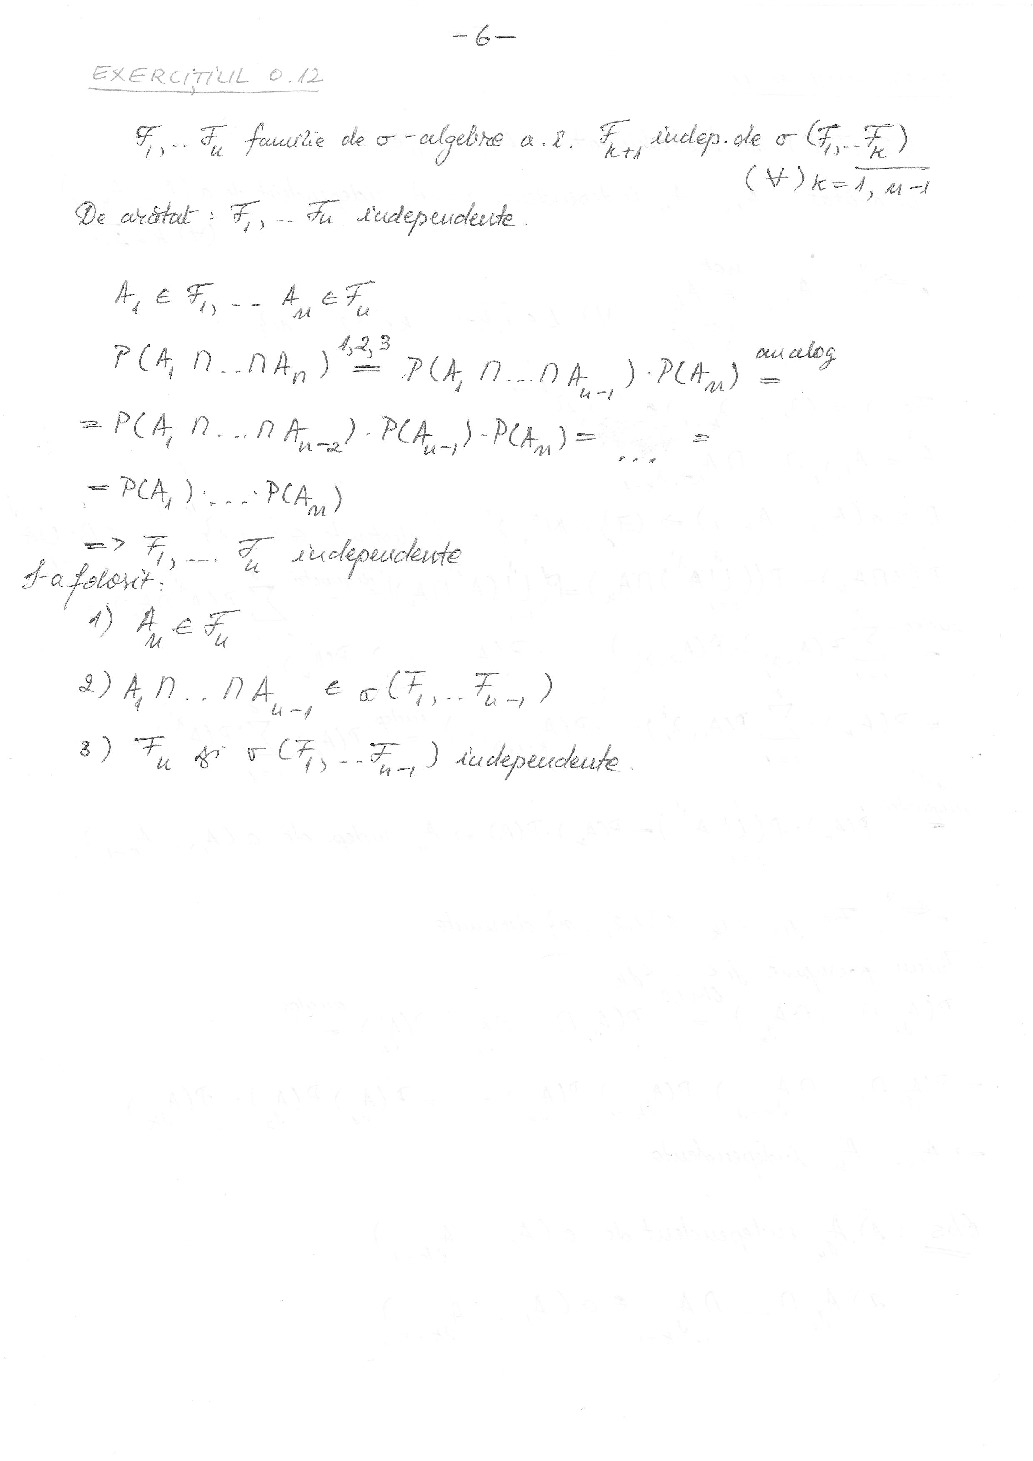 -6-
EXERCIȚIUL 0.12
F₁, .. Fₙ familie de σ-algebre a.î. Fₖ₊₁ indep. de σ(F₁, .. Fₖ)
(∀) k = 1, n-1
De arătat: F₁, .. Fₙ independente.
A₁ ∈ F₁, -- Aₙ ∈ Fₙ
P(A₁ ∩ .. ∩ Aₙ) =^{1,2,3} P(A₁ ∩ ... ∩ Aₙ₋₁) · P(Aₙ) =^{analog}
= P(A₁ ∩ ... ∩ Aₙ₋₂) · P(Aₙ₋₁) · P(Aₙ) = ... =
= P(A₁) · ... · P(Aₙ)
=> F₁, ... Fₙ independente
S-a folosit:
1) Aₙ ∈ Fₙ
2) A₁ ∩ .. ∩ Aₙ₋₁ ∈ σ(F₁, .. Fₙ₋₁)
3) Fₙ și σ(F₁, .. Fₙ₋₁) independente.